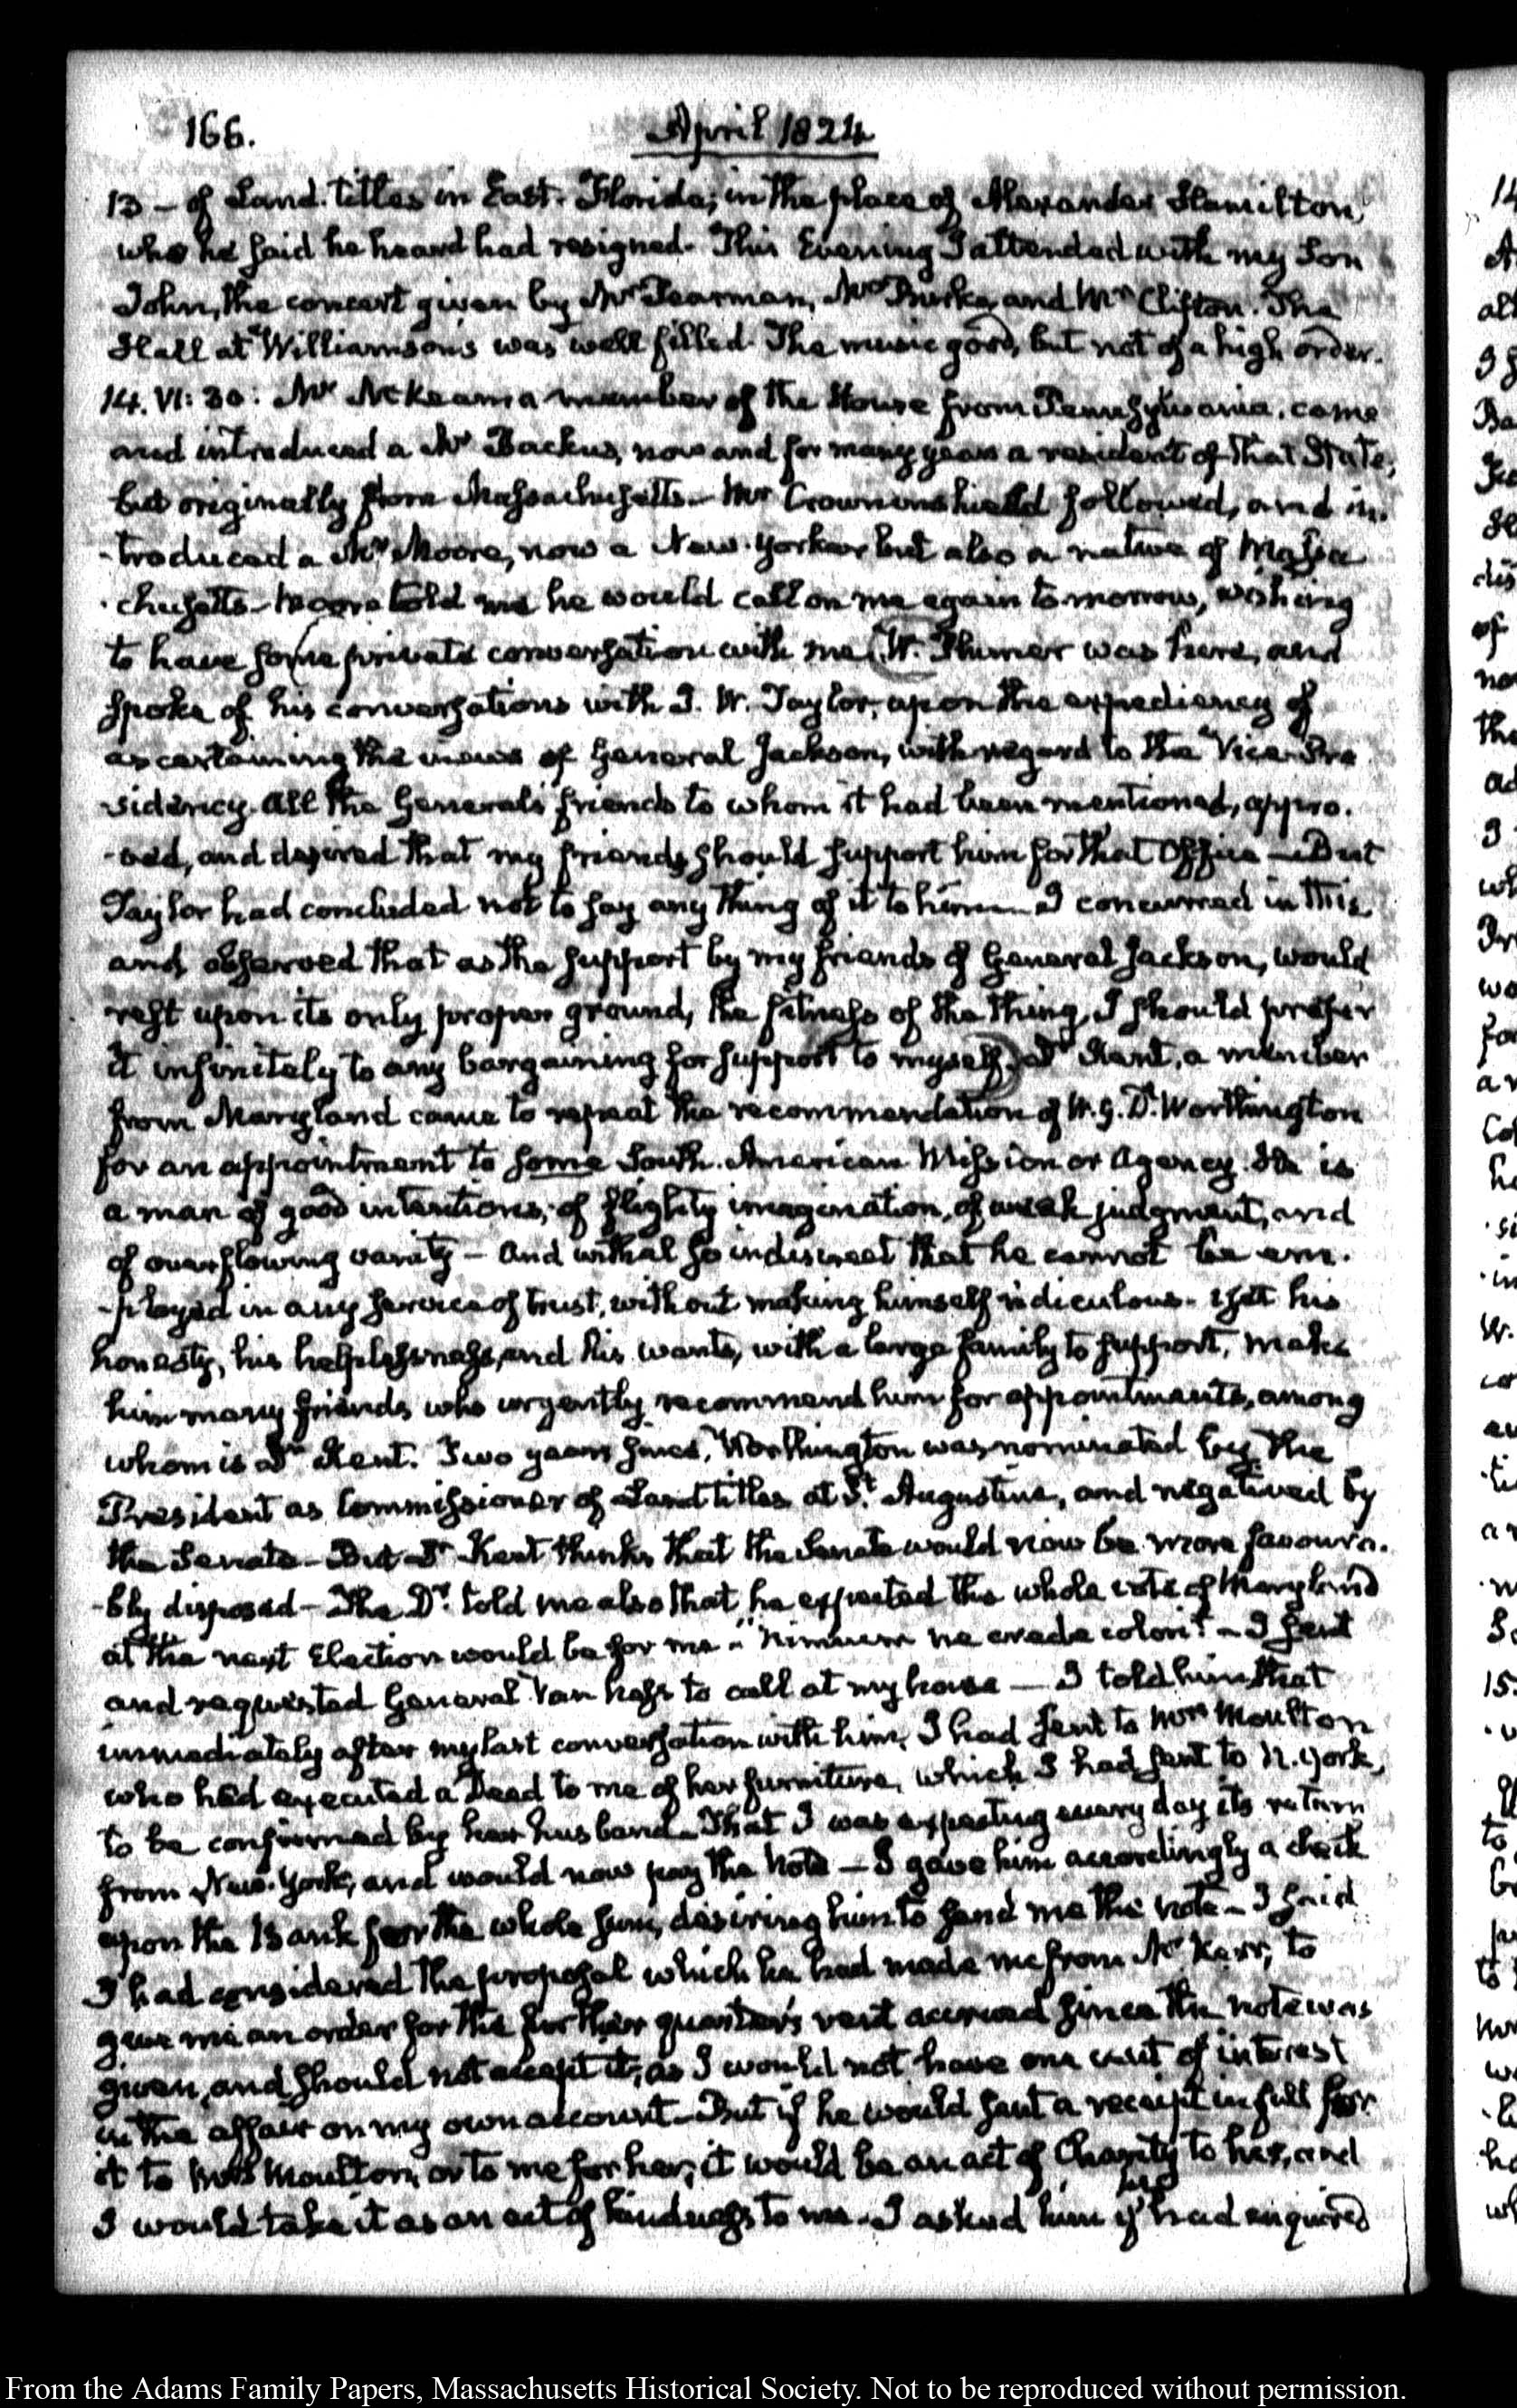 166.
April 1824
13 – of Land titles in East-Florida; in the place of Alexander Hamilton,
who he said he heard had resigned. This Evening I attended with my Son
John, the concert given by Mr Pearman, Mrs Burke, and Mr Clifton. The
Hall at Williamson's was well filled. The music good, but not of a high order.
14. VI: 30: Mr McKean a member of the House from Pennsylvania, came
and introduced a Mr Backus, now and for many years a resident of that State,
but originally from Massachusetts – Mr Crowninshield followed, and in-
-troduced a Mr Moore, now a New-Yorker but also a native of Massa
-chusetts – Moore told me he would call on me again to-morrow, wishing
to have some private conversation with me. W. Plumer was here, and
spoke of his conversations with J. W. Taylor, upon the expediency of
ascertaining the views of General Jackson, with regard to the Vice-Pre
sidency. All the General's friends to whom it had been mentioned, appro-
-ved, and desired that my friends should support him for that Office – But
Taylor had concluded not to say any thing of it to him – I concurred in this
and observed that as the support by my friends of General Jackson, would
rest upon its only proper ground, the fitness of the thing, I should prefer
it infinitely to any bargaining for support to myself. Dr Kent, a member
from Maryland came to repeat the recommendation of W. G. D. Worthington
for an appointment to some South-American Mission or Agency. He is
a man of good intentions, of flighty imagination, of weak judgment, and
of overflowing vanity – And withal so indiscreet that he cannot be em-
-ployed in any service of trust, without making himself ridiculous. Yet his
honesty, his helplessness, and his wants, with a large family to support, make
him many friends who urgently recommend him for appointments, among
whom is Dr Kent. Two years since, Worthington was nominated by the
President as Commissioner of Land titles at St. Augustine, and negatived by
the Senate – But Dr Kent thinks that the Senate would now be more favoura-
-bly disposed – The Dr. told me also that he expected the whole vote of Maryland
at the next Election would be for me – "Nimium ne crede colori." – I sent
and requested General Van Ness to call at my house — I told him that
immediately after my last conversation with him, I had sent to Mrs Moulton
who had executed a Deed to me of her furniture, which I had sent to N. York,
to be confirmed by her husband – That I was expecting every day its return
from New-York, and would now pay the Note – I gave him accordingly a check
upon the Bank for the whole sum, desiring him to send me the note – I said
I had considered the proposal which he had made me from Mr Kerr, to
give me an order for the further quarter's rent accrued since the note was
given, and should not accept it; as I would not have one cent of interest
in the affair on my own account – But if he would sent a receipt in full for
it to Mrs Moulton, or to me for her, it would be an act of Charity to her, and
I would take it as an act of kindness to me – I asked him if he had enquired
From the Adams Family Papers, Massachusetts Historical Society. Not to be reproduced without permission.